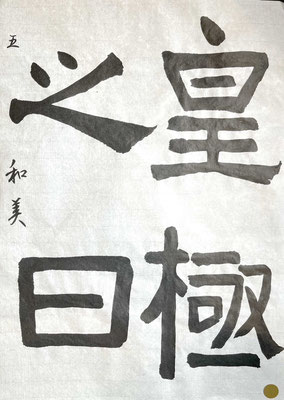 皇極
之日
五 和美